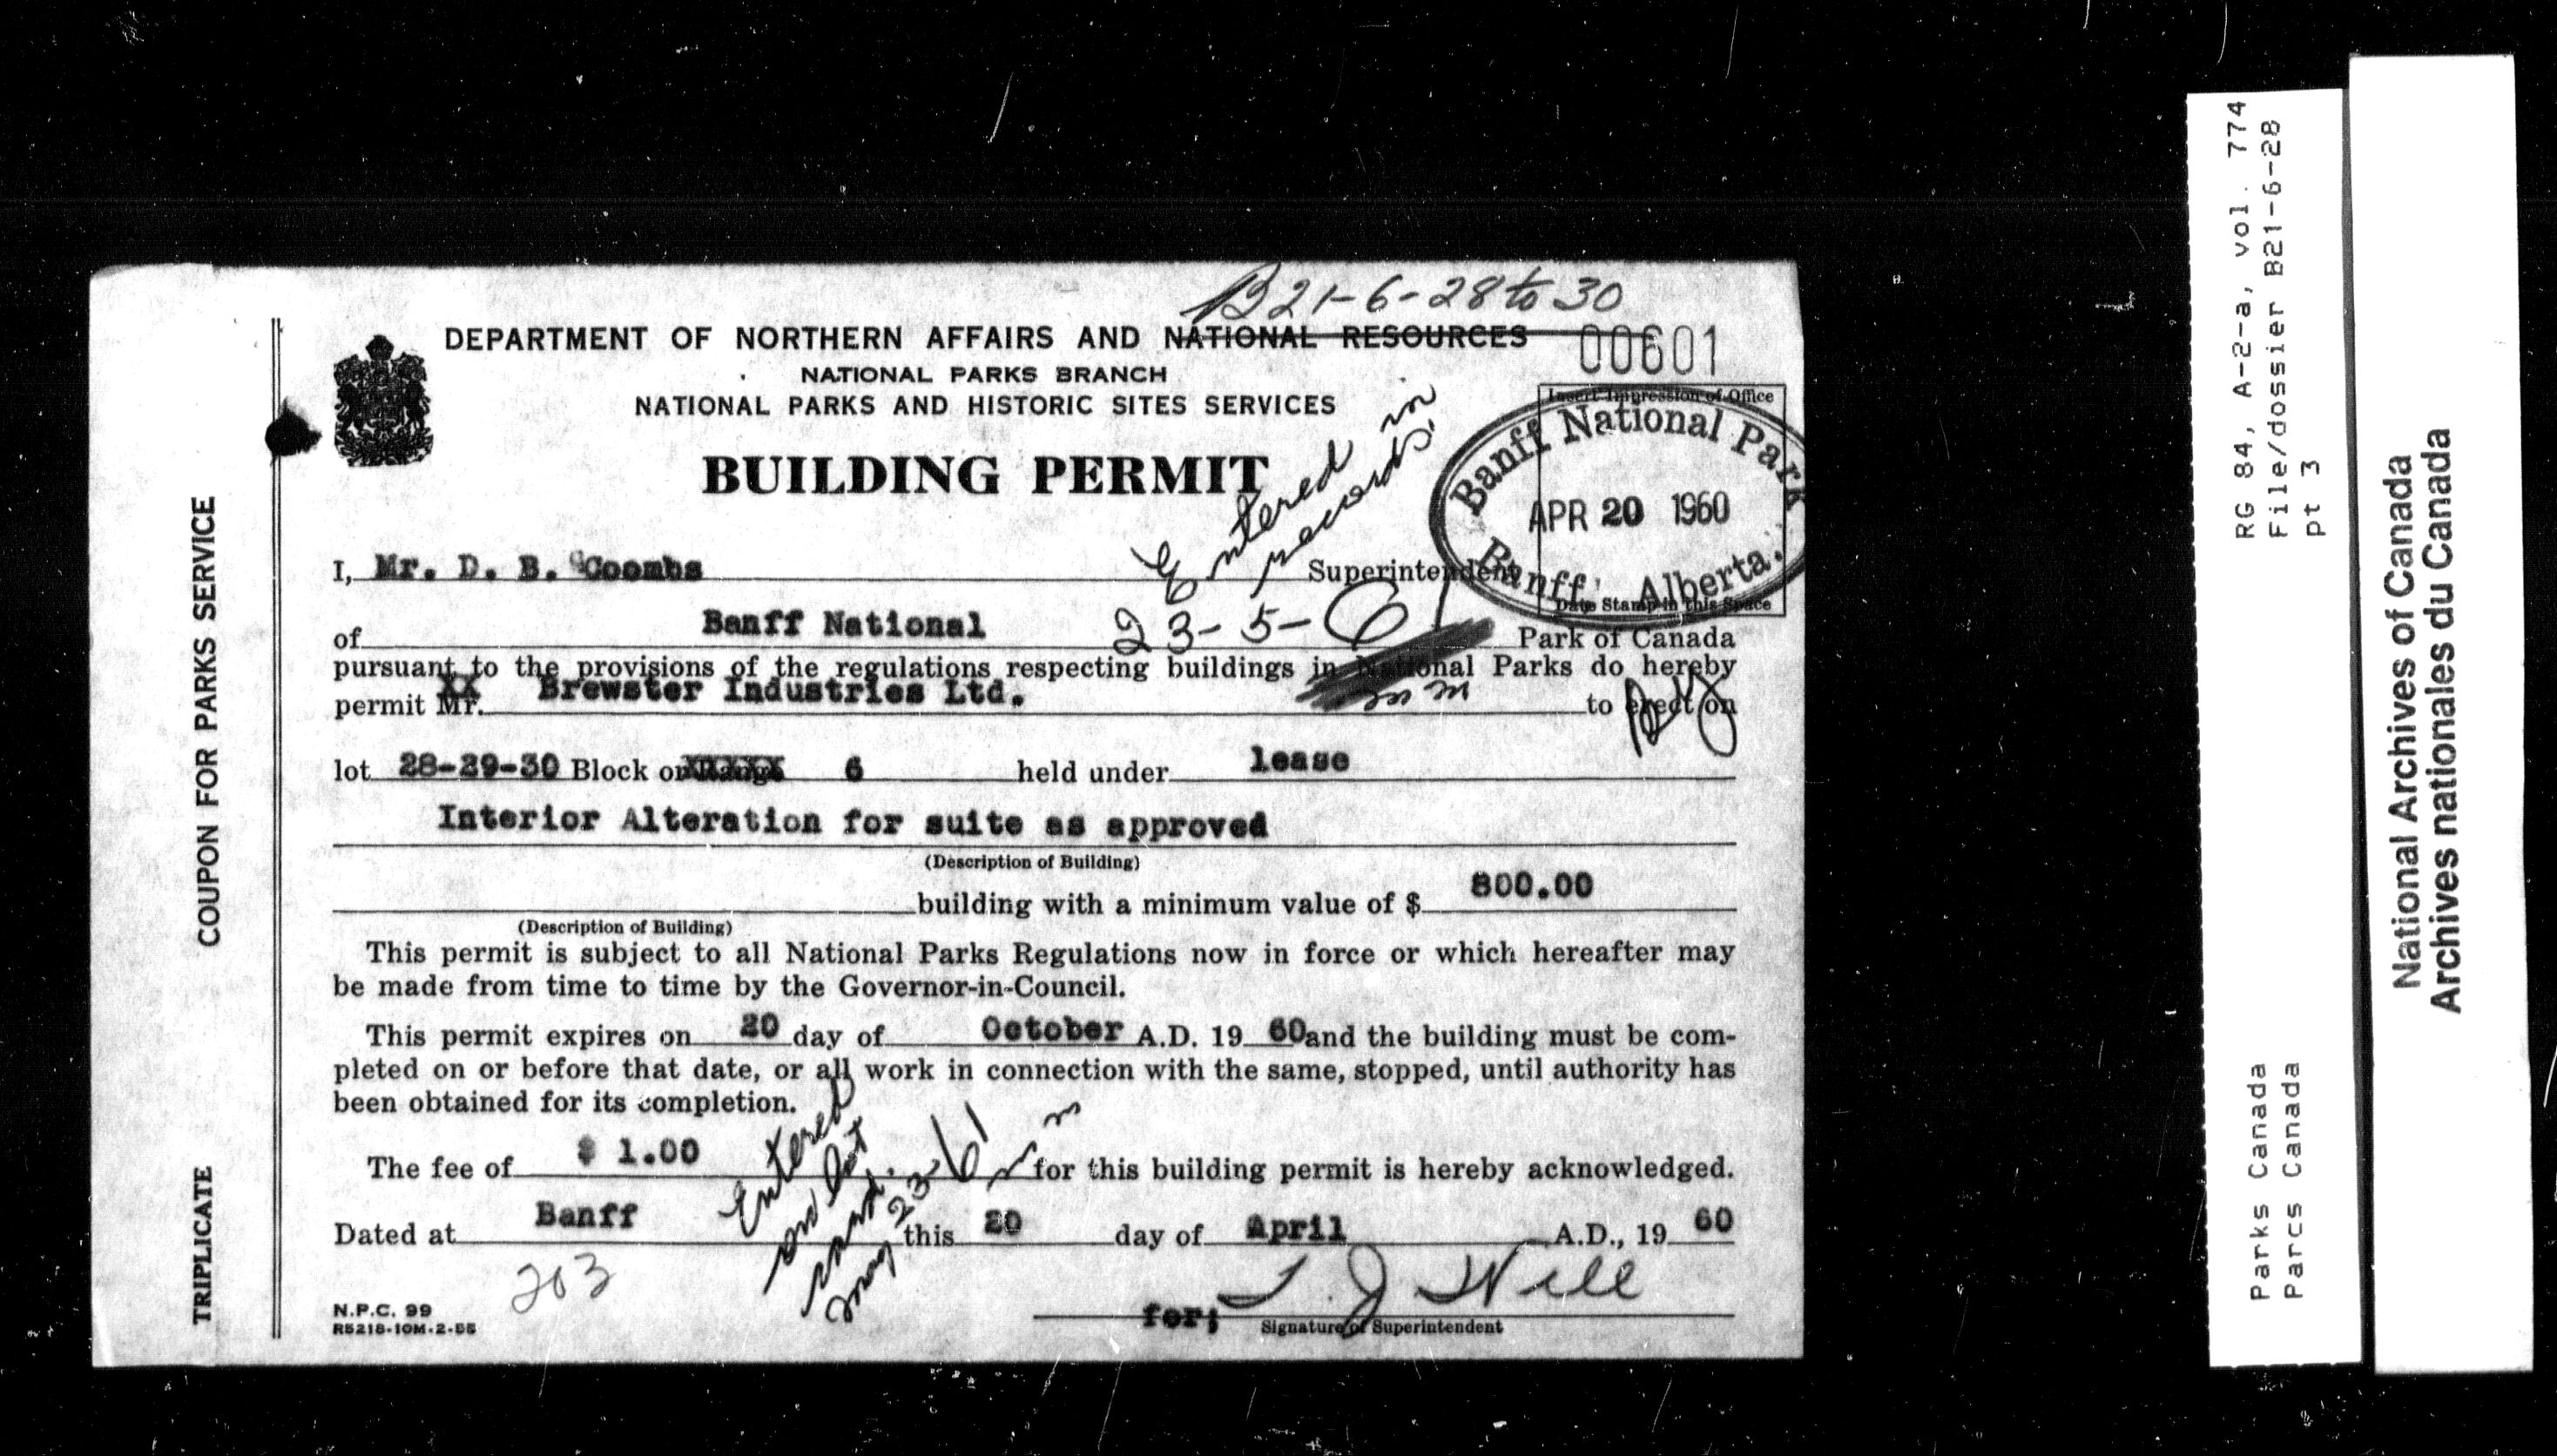 B21-6-28 to 30
DEPARTMENT OF NORTHERN AFFAIRS AND NATIONAL RESOURCES
00601
NATIONAL PARKS BRANCH
NATIONAL PARKS AND HISTORIC SITES SERVICES
Insert Impression of Office
Banff National Park
APR 20 1960
Banff, Alberta.
Date Stamp in this Space
BUILDING PERMIT
Entered in
records.
23-5-61
I, Mr. D. B. Coombs Superintendent
of Banff National Park of Canada
pursuant to the provisions of the regulations respecting buildings in National Parks do hereby
permit Mr. XX Brewster Industries Ltd. to erect on
lot 28-29-30 Block or Range XXXXX 6 held under lease
Interior Alteration for suite as approved
(Description of Building)
building with a minimum value of $ 800.00
(Description of Building)
This permit is subject to all National Parks Regulations now in force or which hereafter may
be made from time to time by the Governor-in-Council.
This permit expires on 20 day of October A.D. 19 60 and the building must be com-
pleted on or before that date, or all work in connection with the same, stopped, until authority has
been obtained for its completion.
The fee of $ 1.00 for this building permit is hereby acknowledged.
Entered
on lot
card.
May 23-61
Dated at Banff this 20 day of April A.D., 19 60
203
for; T. J. Will
Signature of Superintendent
N.P.C. 99
R5218-10M-2-55
COUPON FOR PARKS SERVICE
TRIPLICATE
RG 84, A-2-a, vol. 774
File/dossier B21-6-28
pt 3
Parks Canada
Parcs Canada
National Archives of Canada
Archives nationales du Canada